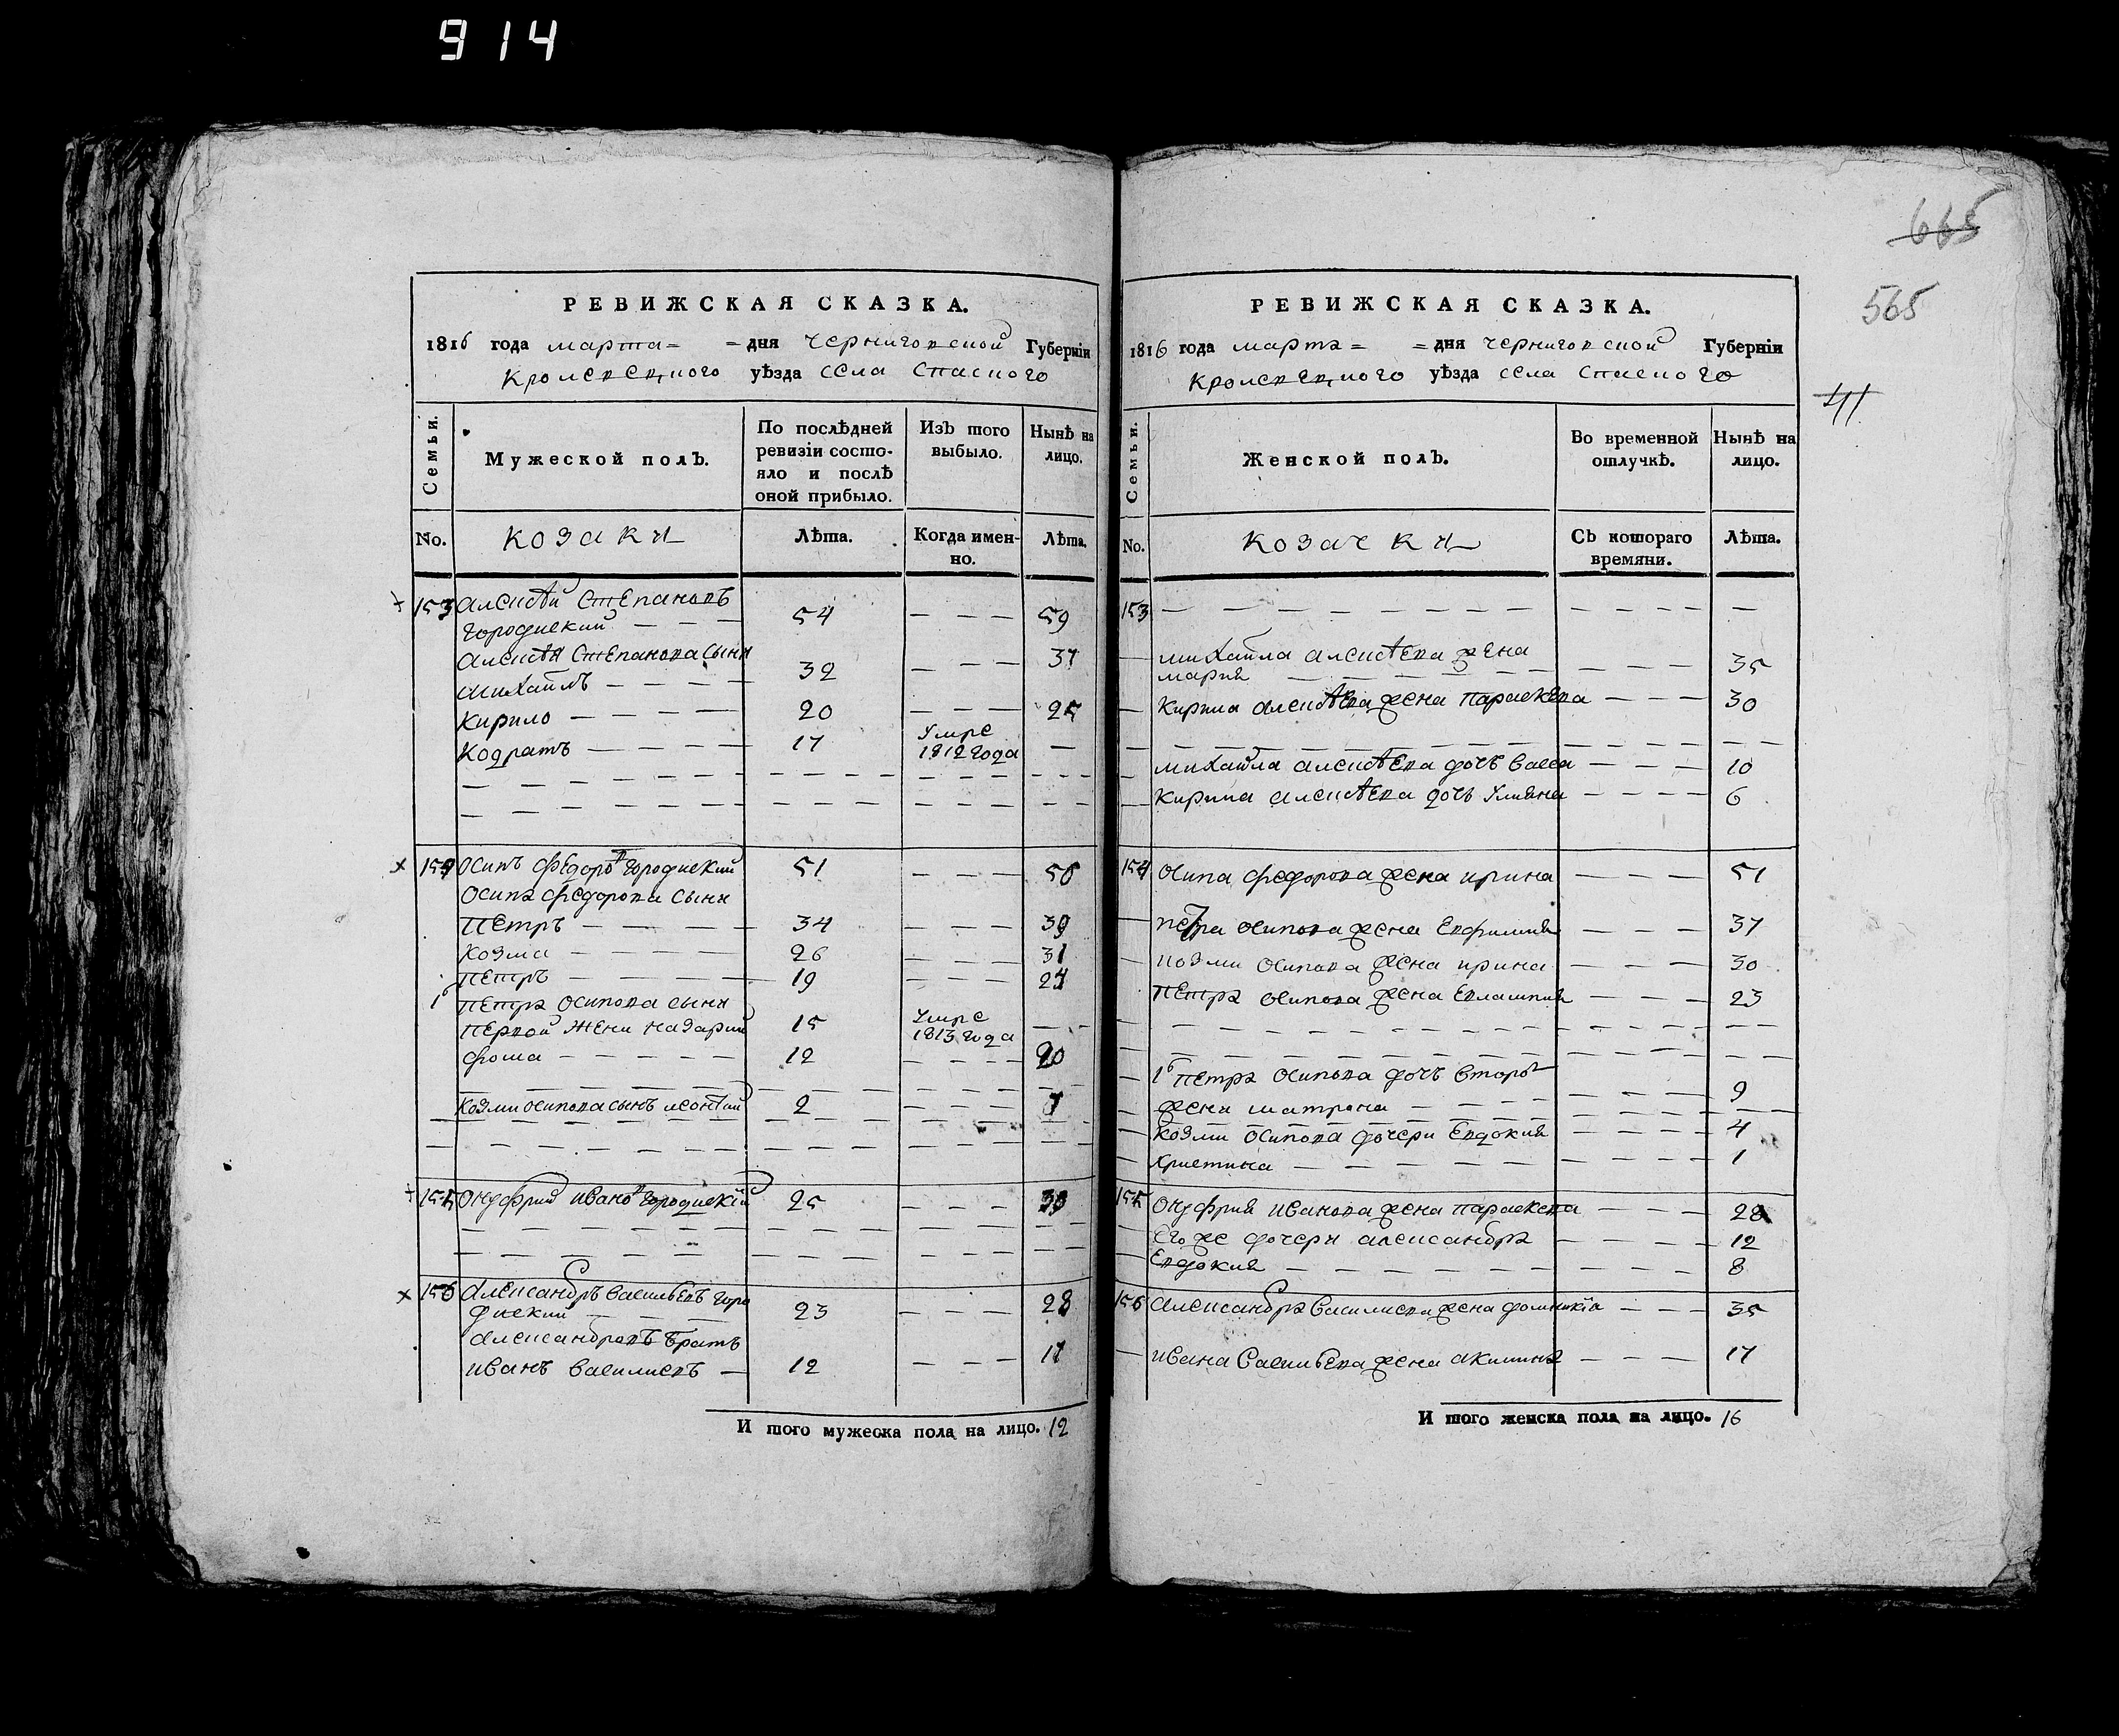 914
665
565
41
РЕВИЖСКАЯ СКАЗКА.
1816 года марта = = дня Черниговской Губерніи
Кролевецкого уѣзда села Спаского
Семьи.
Мужеской полъ.
По послѣдней ревизіи состояло и послѣ оной прибыло.
Изъ того выбыло.
Нынѣ на лицо.
No. козаки Лѣта. Когда именно. Лѣта.
153 Алексѣй Степановъ
Городиский — — — 54 — — — 59
Алексѣя Степанова сыни
Михайлъ — — — — 32 — — — 37
Кирило — — — — 20 — — — 25
Кодратъ — — — — 17 Умре 1812 года —
154 Осипъ Федоровъ Городиский 51 — — — 56
Осипа Федорова сыни
Петръ — — — — 34 — — — 39
Козма — — — — 26 — — — 31
Петръ — — — — 19 — — — 24
Петра Осипова сыни
первой жени Назарий 15 Умре 1813 года — —
Фома — — — — 12 — — — 20
Козми Осипова сынъ Леонтий 2 — — — 7
155 Онуфрий Ивановъ Городиский 25 — — — 30
156 Александръ Васильевъ Горо
диский — — — 23 — — — 28
Александровъ братъ
Иванъ Василиевъ — 12 — — — 17
И того мужеска пола на лицо. 12
РЕВИЖСКАЯ СКАЗКА.
1816 года марта = = дня Черниговской Губерніи
Кролевецкого уѣзда села Спаского
Семьи.
Женской полъ.
Во временной отлучкѣ.
Нынѣ на лицо.
No. козачки Съ котораго времяни. Лѣта.
153 — — — — — — — —
Михайла Алексѣева жена
Мария — — — — — 35
Кирила Алексѣева жена Параскева — — — 30
Михайла Алексѣева дочь Васса — — — 10
Кирила Алексѣева дочь Улияна — — — — 6
154 Осипа Федорова жена Ирина — — — 51
Петра Осипова жена Евфимия — — — 37
Козми Осипова жена Ирина — — — 30
Петра Осипова жена Евлампия — — — 23
Петра Осипова дочь второй
жени Матрона — — — 9
Козми Осипова дочери Евдокия — — — — 4
Христина — — — — — 1
155 Онуфрия Иванова жена Параскева — — — 28
Его же дочери Александра — — — — 12
Евдокия — — — — — 8
156 Александра Василиева жена Домникіа — — — 35
Ивана Васильева жена Акилина — — — 17
И того женска пола на лицо. 16